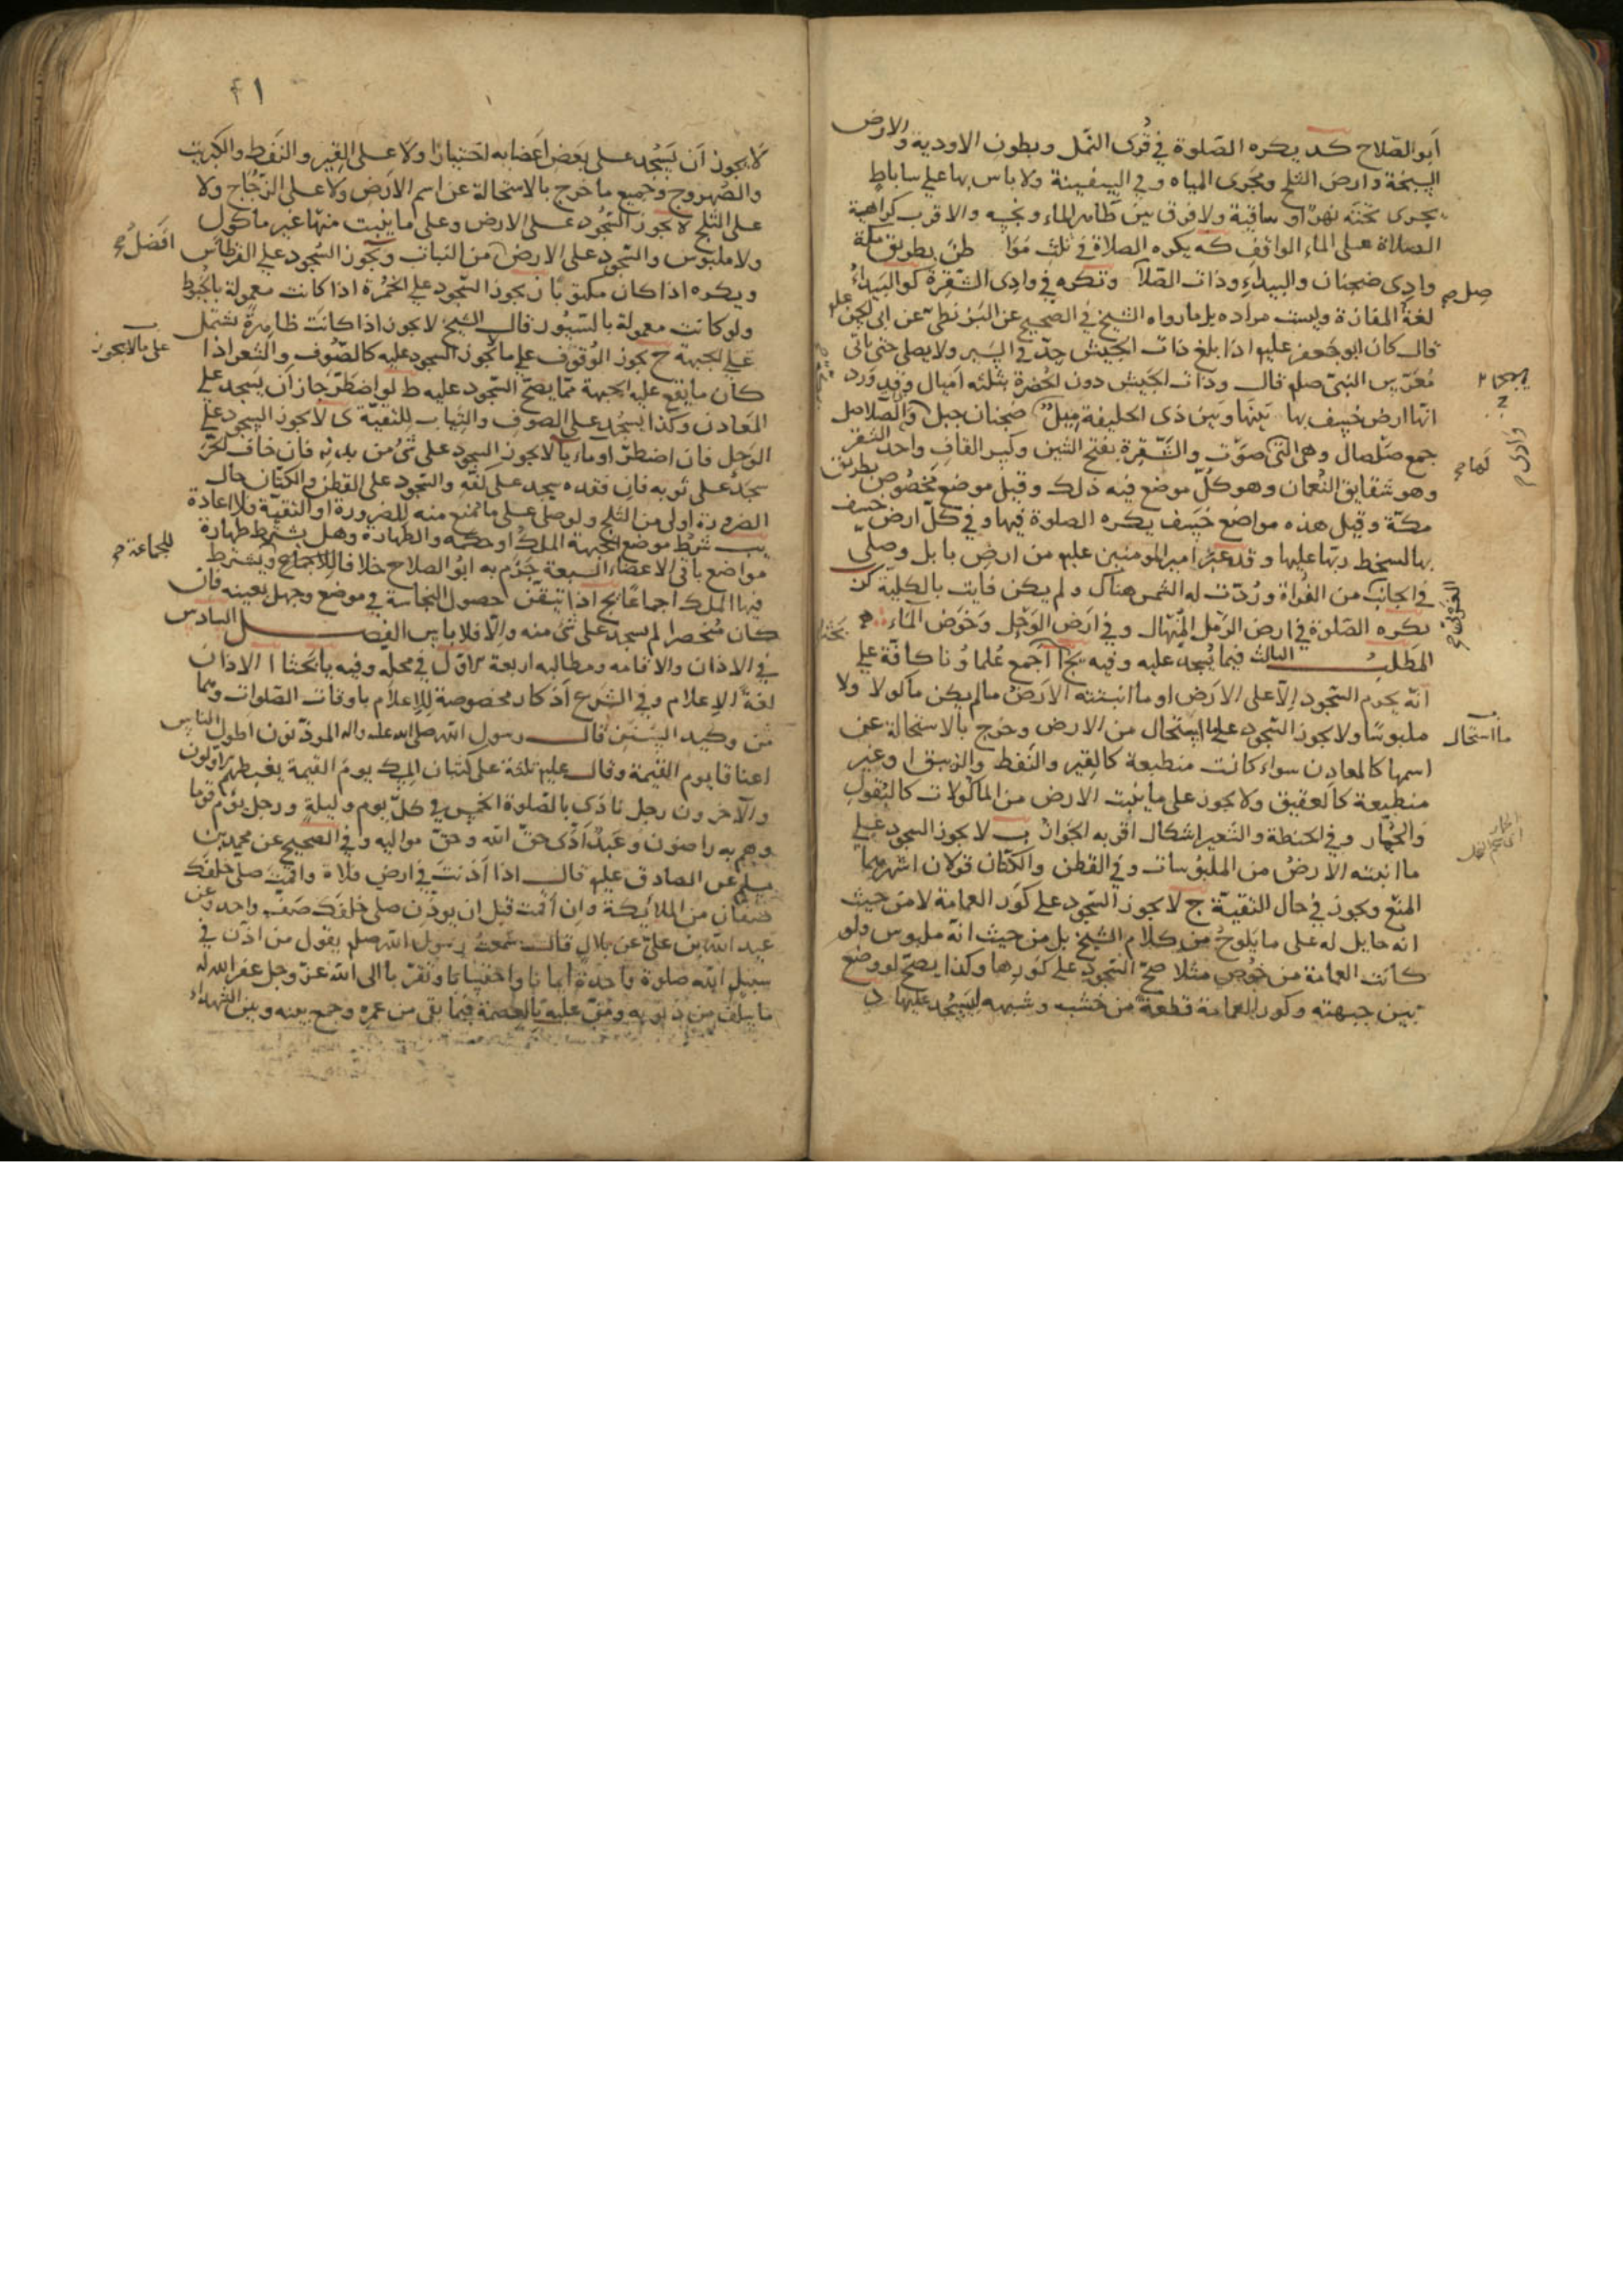 أبو الصلاح كد يكره الصلوة في قرى النمل وبطون الاودية والارض
السبخة وارض الثلج ومجرى المياه وفي السفينة ولا باس بها على ساباط
يجرى تحته نهر او ساقية ولا فرق بين طاهر الماء ونجسه والاقرب كراهية
الصلاة على الماء الواقف كه يكره الصلاة في ثلث مواطن بطريق مكة
وادى ضجنان والبيداء وذات الصلاصل وتكره في وادى الشقرة كو البيداء
لغة المفازة وليست مراده بل ما رواه الشيخ في الصحيح عن البزنطى عن ابى الحسن عليه
قال كان ابو جعفر عليه اذا بلغ ذات الجيش جد في السير ولا يصلى حتى ياتى
معرس النبى صلعم قال وذات الجيش دون الحفيرة بثلثه اميال وقد ورد
انها ارض خسف بها بينها وبين ذى الحليفة ميل ضجنان جبل والصلاصل
جمع صلصال وهى التى صوت والشقرة بفتح الشين وكسر القاف واحد الشقر
وهو شقايق النعمان وهو كل موضع فيه ذلك وقيل موضع مخصوص بطريق
مكة وقيل هذه مواضع خسف يكره الصلوة فيها وفي كل ارض خسف
بها لسخط ربها عليها وقد عبر امير المومنين عليه من ارض بابل وصلى
في الجانب من الفراة وردت له الشمس هناك ولم يكن فايت بالكلية كز
يكره الصلوة في ارض الرمل المنهال وفي ارض الوحل وخوض الماء
المطلب الثالث فيما يسجد عليه وفيه يح ا أجمع علماونا كافة على
انه يحرم السجود إلا على الارض او ما انبتته الارض ما لم يكن ماكولا ولا
ملبوسا ولا يجوز السجود على ما استحال من الارض وخرج بالاستحالة عن
اسمها كالمعادن سواء كانت منطبعة كالقير والنفط والزيبق او غير
منطبعة كالعقيق ولا يجوز على ما ينبت الارض من الماكولات كالبقول
والخيار وفي الحنطة والشعير اشكال اقربه الجواز ب لا يجوز السجود على
ما انبته الارض من الملبوسات وفي القطن والكتان قولان اشهرهما
المنع ويجوز في حال التقية ج لا يجوز السجود على كور العمامة لا من حيث
انه حايل له على ما يلوح من كلام الشيخ بل من حيث انه ملبوس ولو
كانت العمامة من خوص مثلا صح السجود على كورها وكذا يصح لو وضع
بين جبهته وكور العمامة قطعة من خشب وشبهه ليسجد عليها د
صل صح
ما استحال
٤١
لا يجوز ان يسجد على بعض اعضايه اختيارا ولا على القير والنفط والكبريت
والصهروج وجميع ما خرج بالاستحالة عن اسم الارض ولا على الزجاج ولا
على الثلج لا يجوز السجود على الارض وعلى ما ينبت منها غير ماكول
ولا ملبوس والسجود على الارض من النبات ويجوز السجود على القرطاس
ويكره اذا كان مكتوبا ز يجوز السجود على الخمرة اذا كانت معمولة بالخيوط
ولو كانت معمولة بالسيور قال الشيخ لا يجوز اذا كانت ظاهرة تشتمل
على الجبهة ح يجوز الوقوف على ما لا يجوز السجود عليه كالصوف والشعر اذا
كان ما يقع عليه الجبهة مما يصح السجود عليه ط لو اضطر جاز أن يسجد على
المعادن وكذا يسجد على الصوف والثياب للتقية ى لا يجوز السجود على
الوحل فان اضطر اوماء يا لا يجوز السجود على شئ من بدنه فان خاف الحر
سجد على ثوبه فان فقده سجد على كفه والسجود على القطن والكتان حال
الضرورة اولى من الثلج ولو صلى على ما يمنع منه للضرورة او التقية فلا اعادة
يب شرط موضع الجبهة الملك او حكمه والطهارة وهل يشترط طهارة
مواضع باقى الاعضاء السبعة جزم به ابو الصلاح خلافا للاجماع ويشترط
فيها الملك اجماعا يج اذا تيقن حصول النجاسة في موضع وجهل بعينه فان
كان منحصرا لم يسجد على شئ منه والا فلا باس الفصل السادس
في الاذان والاقامه ومطالبه اربعة الاول في محله وفيه يا بحثا ا الاذان
لغة الاعلام وفي الشرع أذكار مخصوصة للاعلام باوقات الصلوات وهما
من وكيد السنن قال رسول الله صلى الله عليه واله الموذنون اطول الناس
اعناقا يوم القيمة وقال عليه ثلثة على كثبان المسك يوم القيمة يغبطهم الاولون
والآخرون رجل نادى بالصلوة الخمس في كل يوم وليلة ورجل يؤم قوما
وهم به راضون وعبد ادى حق الله وحق مواليه وفي الصحيح عن محمد بن
مسلم عن الصادق عليه قال اذا أذنت في ارض فلاة واقمت صلى خلفك
صفان من الملائكة وان اقمت قبل ان يوذن صلى خلفك صف واحد وعن
عبد الله بن على عن بلال قال سمعت رسول الله صلعم يقول من اذن في
سبيل الله صلوة واحدة ايمانا واحتسابا وتقربا الى الله عز وجل غفر الله له
ما سلف من ذنوبه ومن عليه بالعصمة فيما بقى من عمره وجمع بينه وبين الشهداء
افضل صح
على ما لا يجوز
للجماعة صح